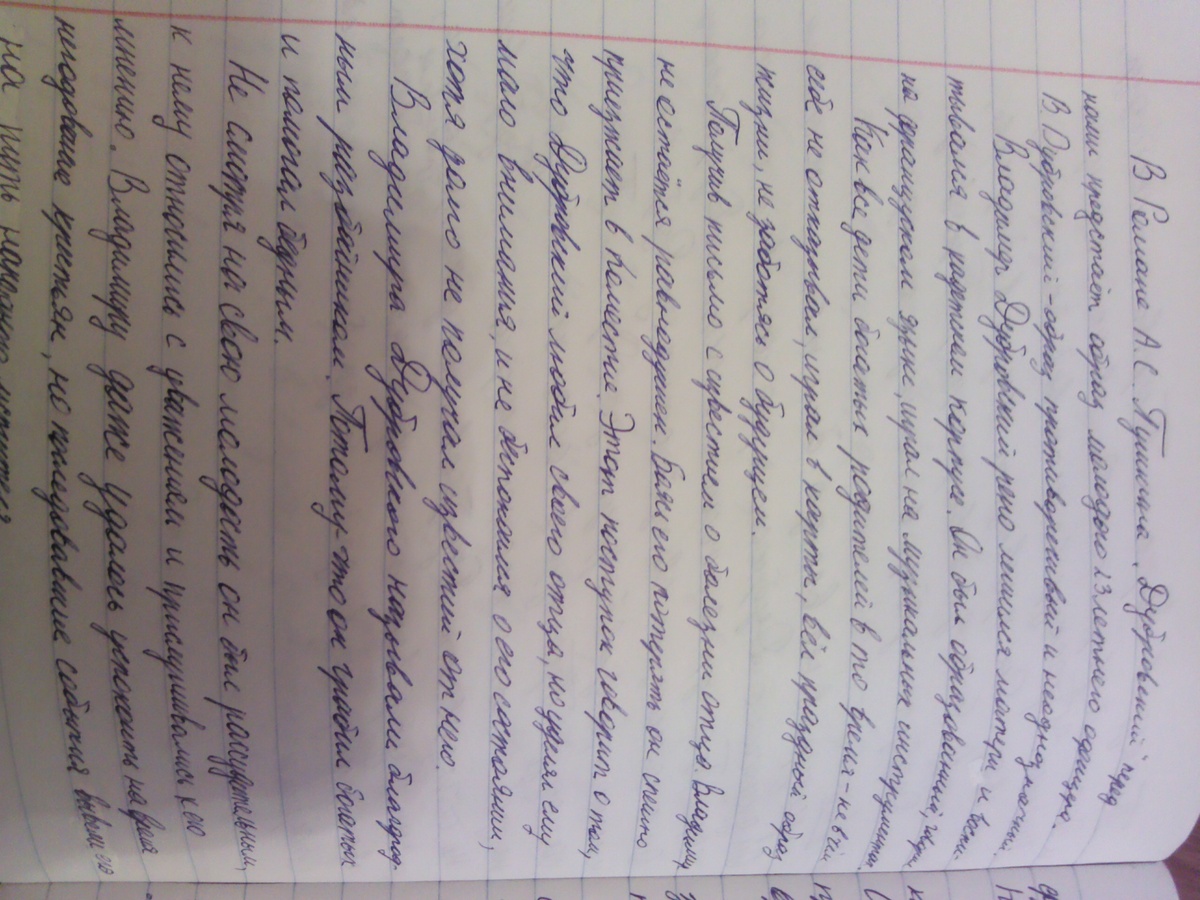 В Романе А.С. Пушкина „Дубровский" перед
нами предстаёт образ молодого 23 летнего офицера.
В Дубровский - образ противоречивый и неоднозначный.
Владимир Дубровский рано лишился матери и воспи-
тывался в кадетском корпусе. Он был образованный,
на французском языке, играл на музыкальных инструментах.
Как все дети богатых родителей в то время - ни в чём
себе не отказывал, играл в карты, вёл праздный образ
жизни, не заботясь о будущем.
Получив письмо с известием о болезни отца. Владимир
не остаётся равнодушен. Боясь его потерять он спешно
приезжает в поместье. Этот поступок говорит о том,
что Дубровский любил своего отца, но уделял ему
мало внимания, и не беспокоился о его состоянии,
хотя долго не получал известий от него.
Владимира Дубровского называли благород-
ным разбойником. Потому-что он грабил богатых
и помогал бедным.
Не смотря на свою молодость он был рассудительным,
к нему относились с уважением и прислушивались к его
мнению. Владимиру даже удалось успокоить на время
негодование крестьян, но последовавшие события вывели его
на путь